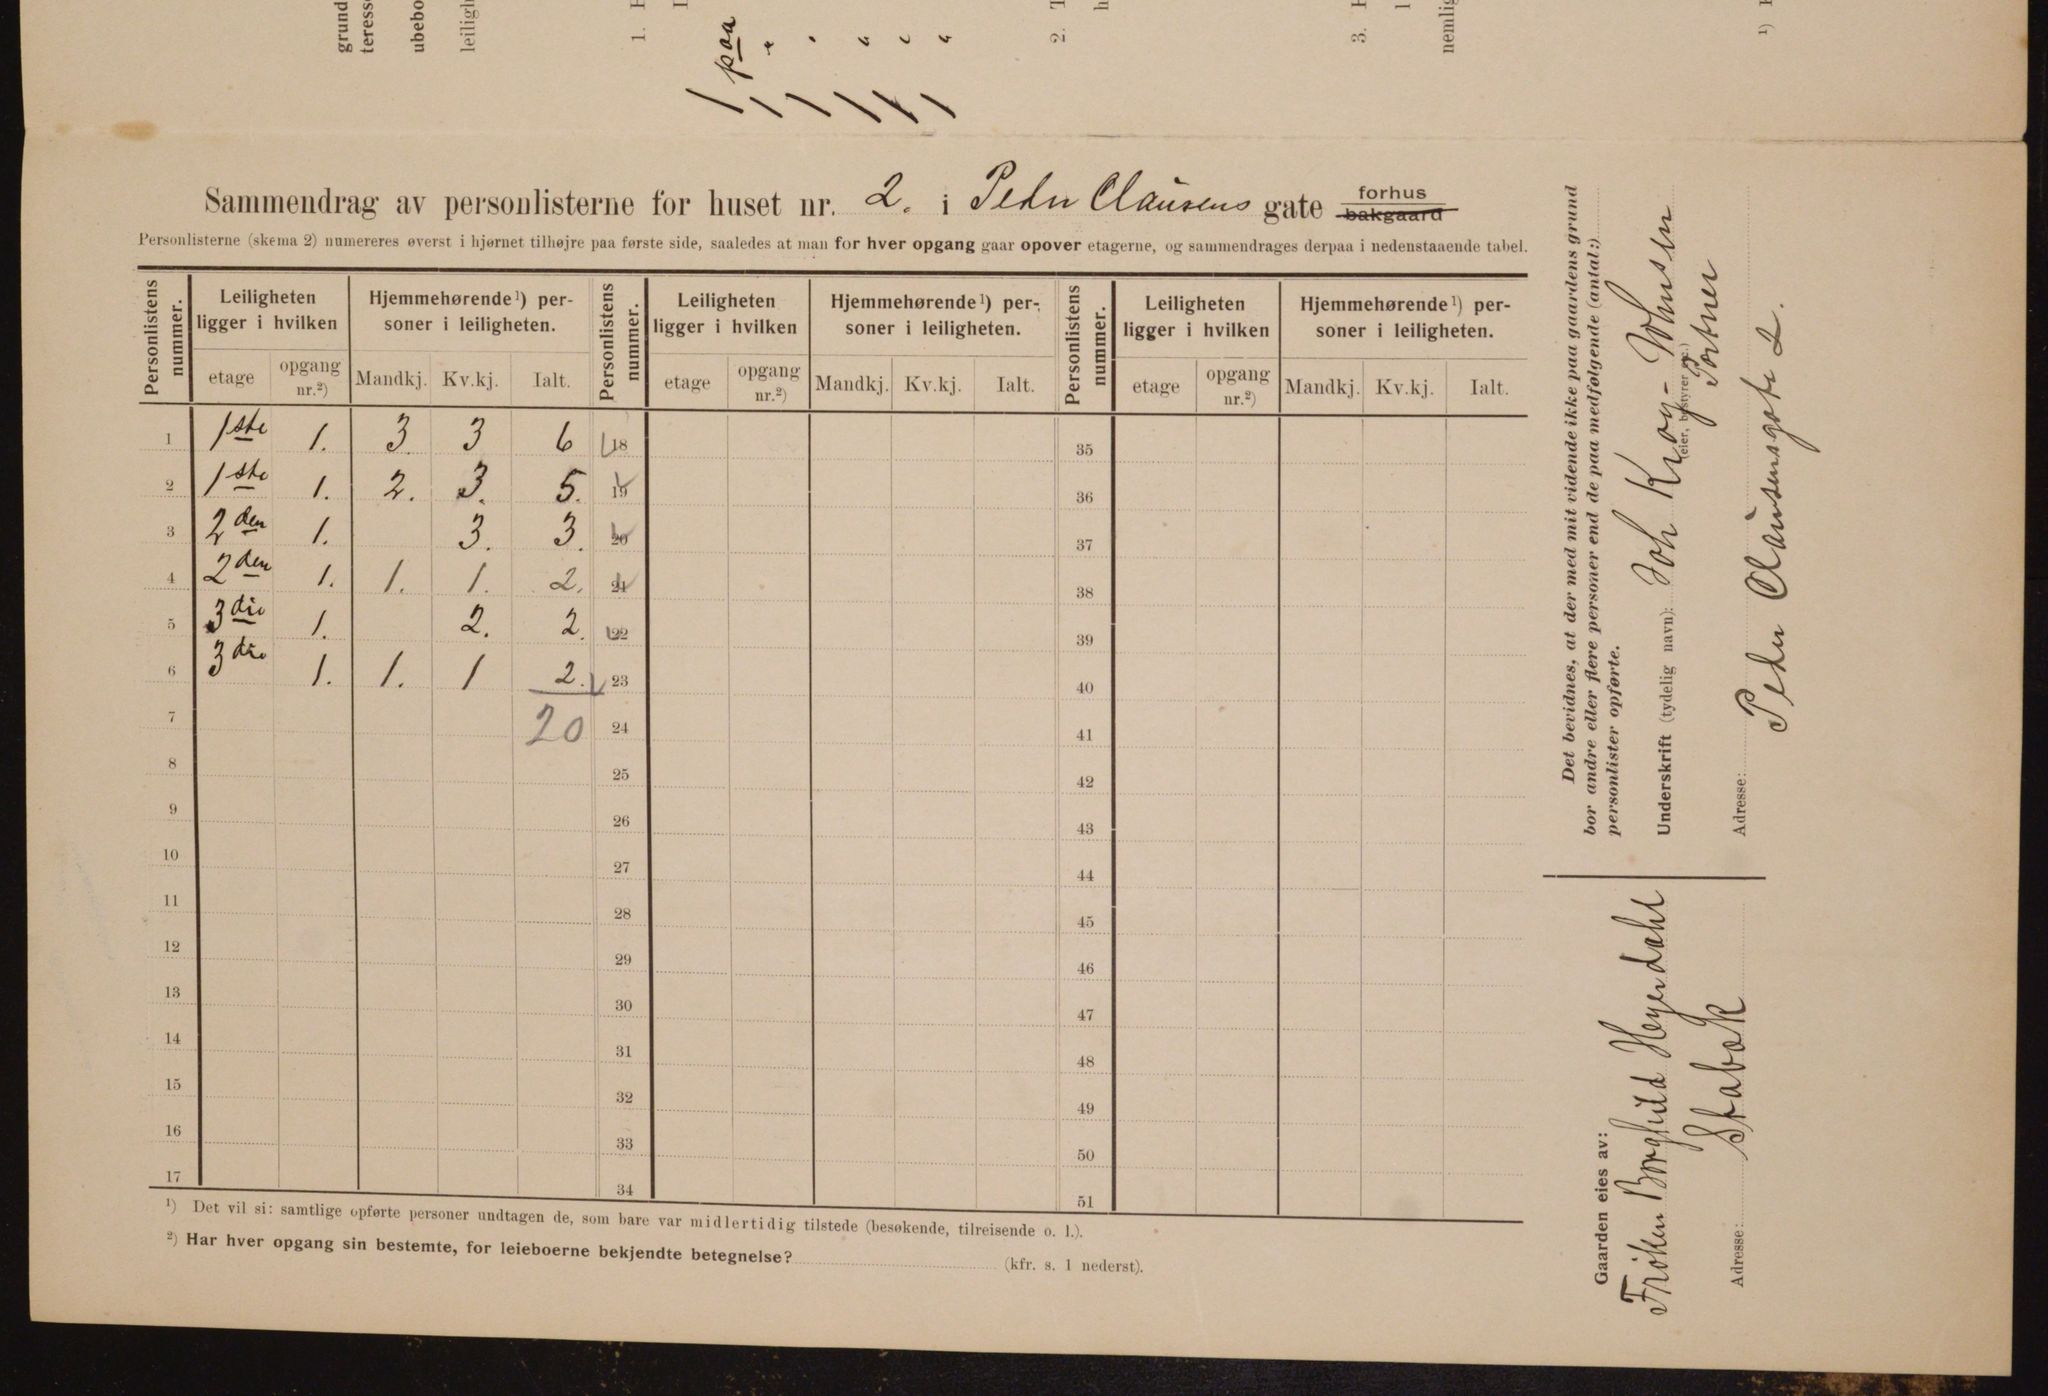 grund
teress
ubebo
leiligh
1.
paa
2.
3.
nemlig
Sammendrag av personlisterne for huset nr. 2. i Peder Clausens gate forhus
bakgaard
Personlisterne (skema 2) numereres øverst i hjørnet tilhøjre paa første side, saaledes at man for hver opgang gaar opover etagerne, og sammendrages derpaa i nedenstaaende tabel.
Personlistens nummer. Leiligheten ligger i hvilken Hjemmehørende ¹) personer i leiligheten. Personlistens nummer. Leiligheten ligger i hvilken Hjemmehørende ¹) personer i leiligheten. Personlistens nummer. Leiligheten ligger i hvilken Hjemmehørende ¹) personer i leiligheten.
etage opgang nr.²) Mandkj. Kv.kj. Ialt. etage opgang nr.²) Mandkj. Kv.kj. Ialt. etage opgang nr.²) Mandkj. Kv.kj. Ialt.
1 1ste 1. 3 3 6 18 35
2 1ste 1. 2. 3. 5. 19 36
3 2den 1. 3. 3. 20 37
4 2den 1. 1. 1. 2. 21 38
5 3die 1. 2. 2. 22 39
6 3die 1. 1. 1 2. 23 40
7 20 24 41
8 25 42
9 26 43
10 27 44
11 28 45
12 29 46
13 30 47
14 31 48
15 32 49
16 33 50
17 34 51
¹) Det vil si: samtlige opførte personer undtagen de, som bare var midlertidig tilstede (besøkende, tilreisende o. l.).
²) Har hver opgang sin bestemte, for leieboerne bekjendte betegnelse? (kfr. s. 1 nederst).
Det bevidnes, at der med mit vidende ikke paa gaardens grund
bor andre eller flere personer end de paa medfølgende (antal:)
personlister opførte.
Underskrift (tydelig navn): Joh Krog-Johnsen
(eier, bestyrer etc.)
Portner
Adresse: Peder Clausensgate 2.
Gaarden eies av:
Frøken Borghild Heyerdahl
Adresse: Stabæk